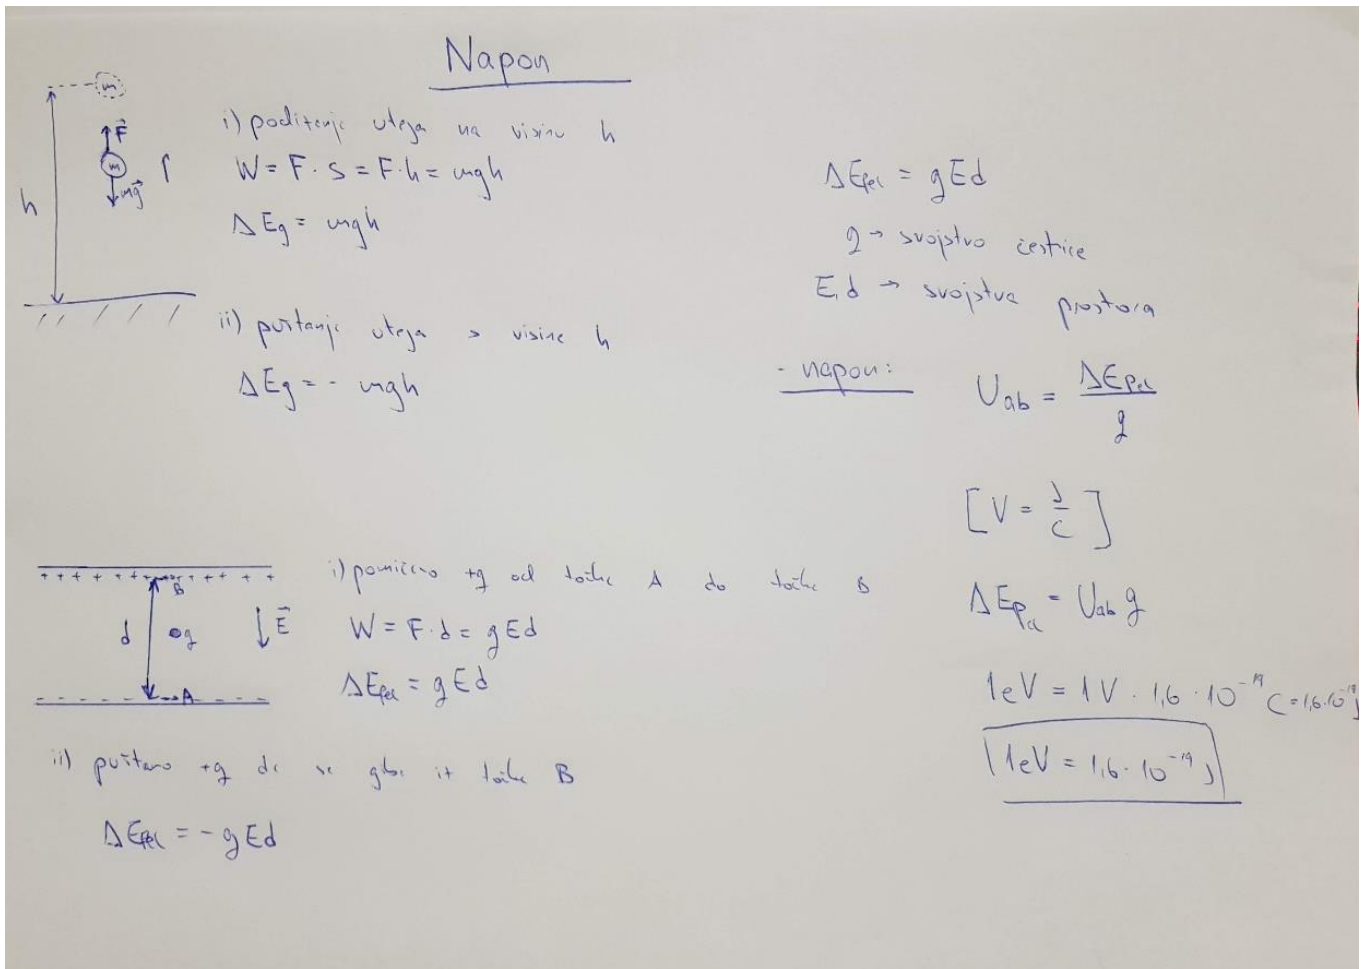 Napon
m
F
m
mg
h
i) podizanje utega na visinu h
W = F · s = F · h = mgh
ΔEg = mgh
ii) puštanje utega s visine h
ΔEg = - mgh
+ + + + + + + + + + + +
B
d
q
E
A
- - - - - - - -
i) pomičemo +q od točke A do točke B
W = F · d = qEd
ΔEpel = qEd
ii) puštamo +q da se giba iz točke B
ΔEpel = - qEd
ΔEpel = qEd
q → svojstvo čestice
E, d → svojstva prostora
- napon:
Uab = ΔEpel / q
[V = J/C]
ΔEpel = Uab q
1eV = 1V · 1,6 · 10⁻¹⁹ C = 1,6 · 10⁻¹⁹ J
1eV = 1,6 · 10⁻¹⁹ J